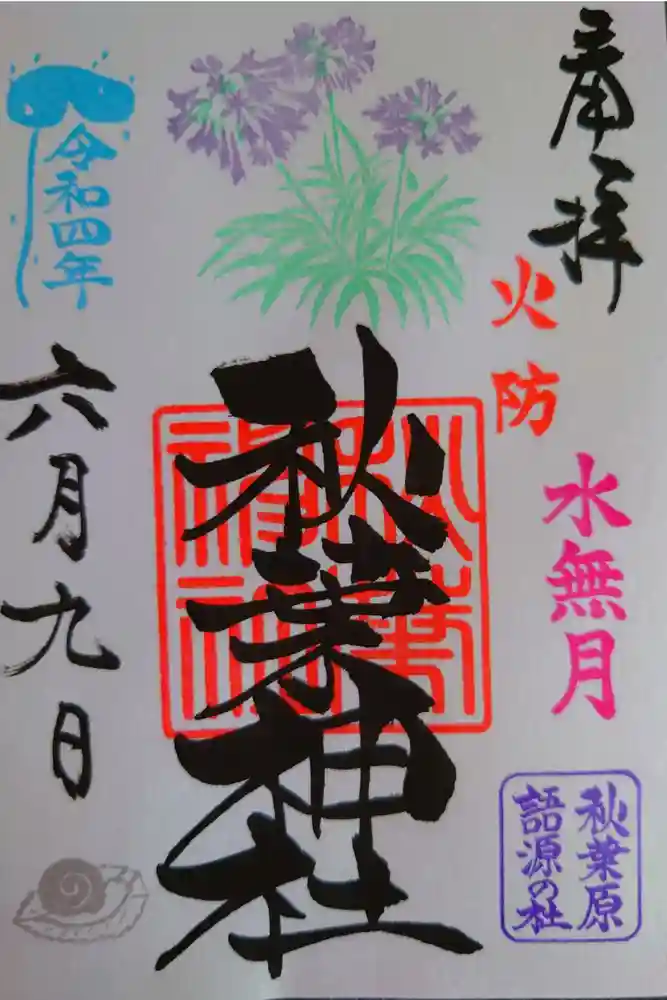 奉拝
火防
水無月
秋葉原
語源の社
秋葉神社
令和四年
六月九日